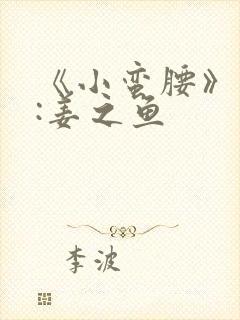 《小蛮腰》
:姜之鱼
李波